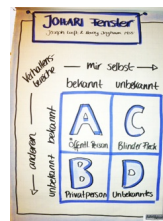 JOHARI Fenster
Joseph Luft & Harry Ingham
Verhaltens-
bereiche
mir selbst
bekannt unbekannt
anderen
bekannt
unbekannt
A
Öffentl. Person
C
Blinder Fleck
B
Privatperson
D
Unbekanntes